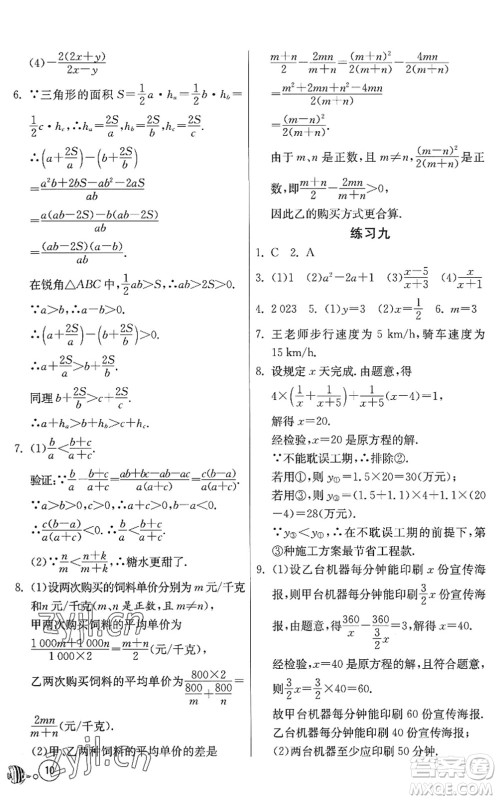 (4)-2(2x+y)/(2x-y)
6. ∵三角形的面积 S=1/2 a·hₐ=1/2 b·h_b=
1/2 c·h_c,∴hₐ=2S/a,h_b=2S/b,h_c=2S/c.
∴(a+2S/a)-(b+2S/b)
=(a²b+2bS-ab²-2aS)/ab
=(a(ab-2S)-b(ab-2S))/ab
=(ab-2S)(a-b)/ab.
在锐角△ABC 中,1/2 ab>S,∴ab-2S>0.
∵a>b,∴a-b>0.
∴a+2S/a>b+2S/b.
同理 b+2S/b>c+2S/c.
∴a+hₐ>b+h_b>c+h_c.
7. (1)b/a<(b+c)/(a+c).
验证:∵b/a-(b+c)/(a+c)=(ab+bc-ab-ac)/(a(a+c))=c(b-a)/(a(a+c)),
∵a>b>0,c>0,∴b-a<0,a+c>0.
∴c(b-a)/(a(a+c))<0.∴b/a<(b+c)/(a+c).
(2)∵n/m<(n+k)/(m+k),∴糖水更甜了.
8. (1)设两次购买的饲料单价分别为 m 元/千克
和 n 元/千克(m>0,n>0,m≠n),
甲两次购买饲料的平均单价为
(1 000m+1 000n)/(1 000×2)=(m+n)/2(元/千克),
乙两次购买饲料的平均单价为(800×2)/(800/m+800/n)=
2mn/(m+n)(元/千克).
(2)甲、乙两种饲料的平均单价的差是
(m+n)/2-2mn/(m+n)=(m+n)²/2(m+n)-4mn/2(m+n)
=(m²+2mn+n²-4mn)/2(m+n)
=(m-n)²/2(m+n).
由于 m、n 是正数,且 m≠n,(m-n)²/2(m+n)是正
数,即(m+n)/2-2mn/(m+n)>0,
因此乙的购买方式更合算.
练习九
1. C 2. A
3. (1)1 (2)a²-a+1 (3)(x-5)/(x+3) (4)x/(x+3)
4. 2 023 5. (1)y=3 (2)x=1/2 6. m=3
7. 王老师步行速度为 5 km/h,骑车速度为
15 km/h.
8. 设规定 x 天完成.由题意,得
4×(1/x+1/(x+5))+(x-4)/(x+5)=1,
解得 x=20.
经检验,x=20 是原方程的解.
∵不能耽误工期,∴排除②.
若用①,y①=1.5×20=30(万元);
若用③,y③=(1.5+1.1)×4+1.1×(20
-4)=28(万元).
∵y③<y①,∴在不耽误工期的前提下,第
③种施工方案最节省工程款.
9. (1)设乙台机器每分钟能印刷 x 份宣传海
报,则甲台机器每分钟能印刷 3/2 x 份宣传海
报.由题意,得 360/x-360/(3/2 x)=3,解得 x=40.
经检验,x=40 是原方程的解,且符合题意,
则 3/2 x=3/2×40=60.
故甲台机器每分钟能印刷 60 份宣传海报,
乙台机器每分钟能印刷 40 份宣传海报.
(2)两台机器至少应印刷 50 分钟.
10
zyjl.cn
zyjl.cn